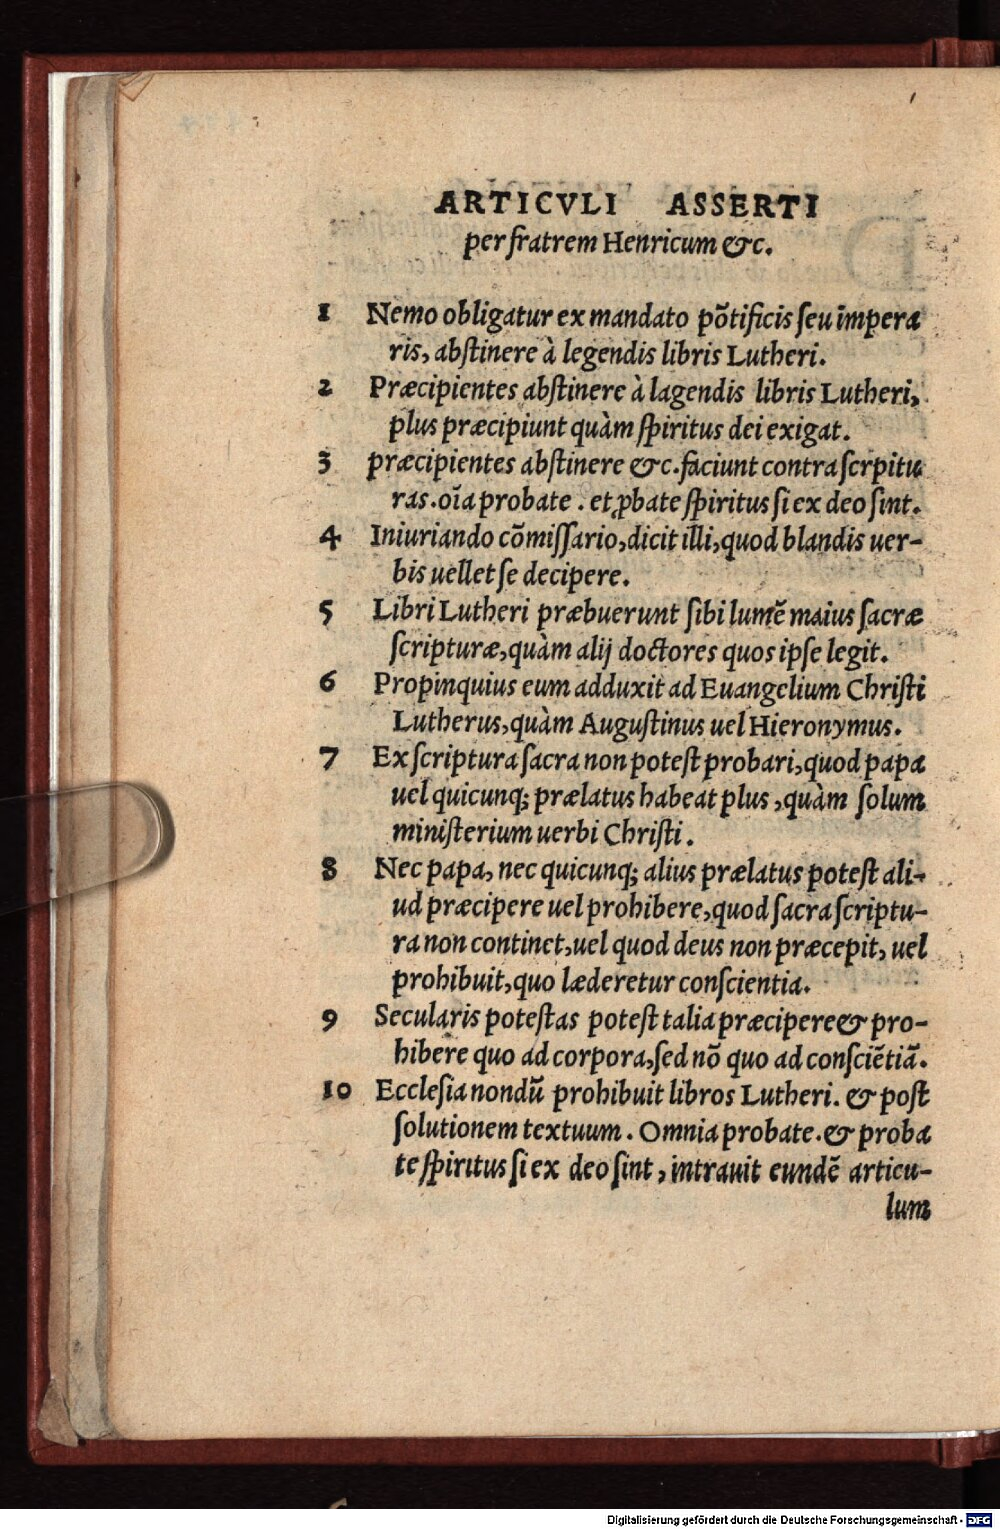 ARTICVLI ASSERTI
per fratrem Henricum &c.
1 Nemo obligatur ex mandato põtificis ſeu impera
ris, abſtinere à legendis libris Lutheri.
2 Præcipientes abſtinere à lagendis libris Lutheri,
plus præcipiunt quàm ſpiritus dei exigat.
3 præcipientes abſtinere &c. faciunt contra ſcrpitu
ras. oĩa probate. et ꝓbate ſpiritus ſi ex deo ſint.
4 Iniuriando cõmiſſario, dicit illi, quod blandis uer-
bis uellet ſe decipere.
5 Libri Lutheri præbuerunt ſibi lumẽ maius ſacræ
ſcripturæ, quàm alij doctores quos ipſe legit.
6 Propinquius eum adduxit ad Euangelium Chriſti
Lutherus, quàm Auguſtinus uel Hieronymus.
7 Ex ſcriptura ſacra non poteſt probari, quod papa
uel quicunq; prælatus habeat plus, quàm ſolum
miniſterium uerbi Chriſti.
8 Nec papa, nec quicunq; alius prælatus poteſt ali-
ud præcipere uel prohibere, quod ſacra ſcriptu-
ra non continet, uel quod deus non præcepit, uel
prohibuit, quo læderetur conſcientia.
9 Secularis poteſtas poteſt talia præcipere & pro-
hibere quo ad corpora, ſed nõ quo ad conſciẽtiã.
10 Eccleſia nondũ prohibuit libros Lutheri. & poſt
ſolutionem textuum. Omnia probate. & proba
te ſpiritus ſi ex deo ſint, intrauit eundẽ articu-
lum
Digitalisierung gefördert durch die Deutsche Forschungsgemeinschaft - DFG